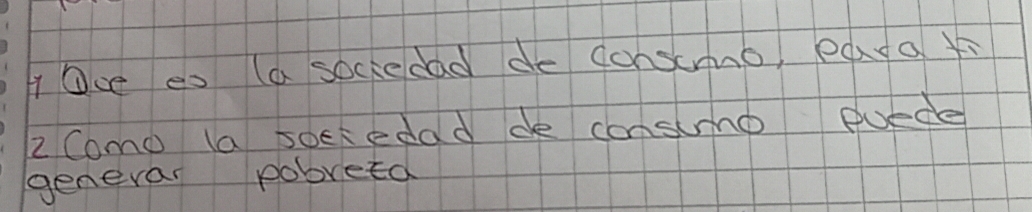 1 Que es la sociedad de consumo, para ti
2 Como la sociedad de consumo puede
generar pobreza